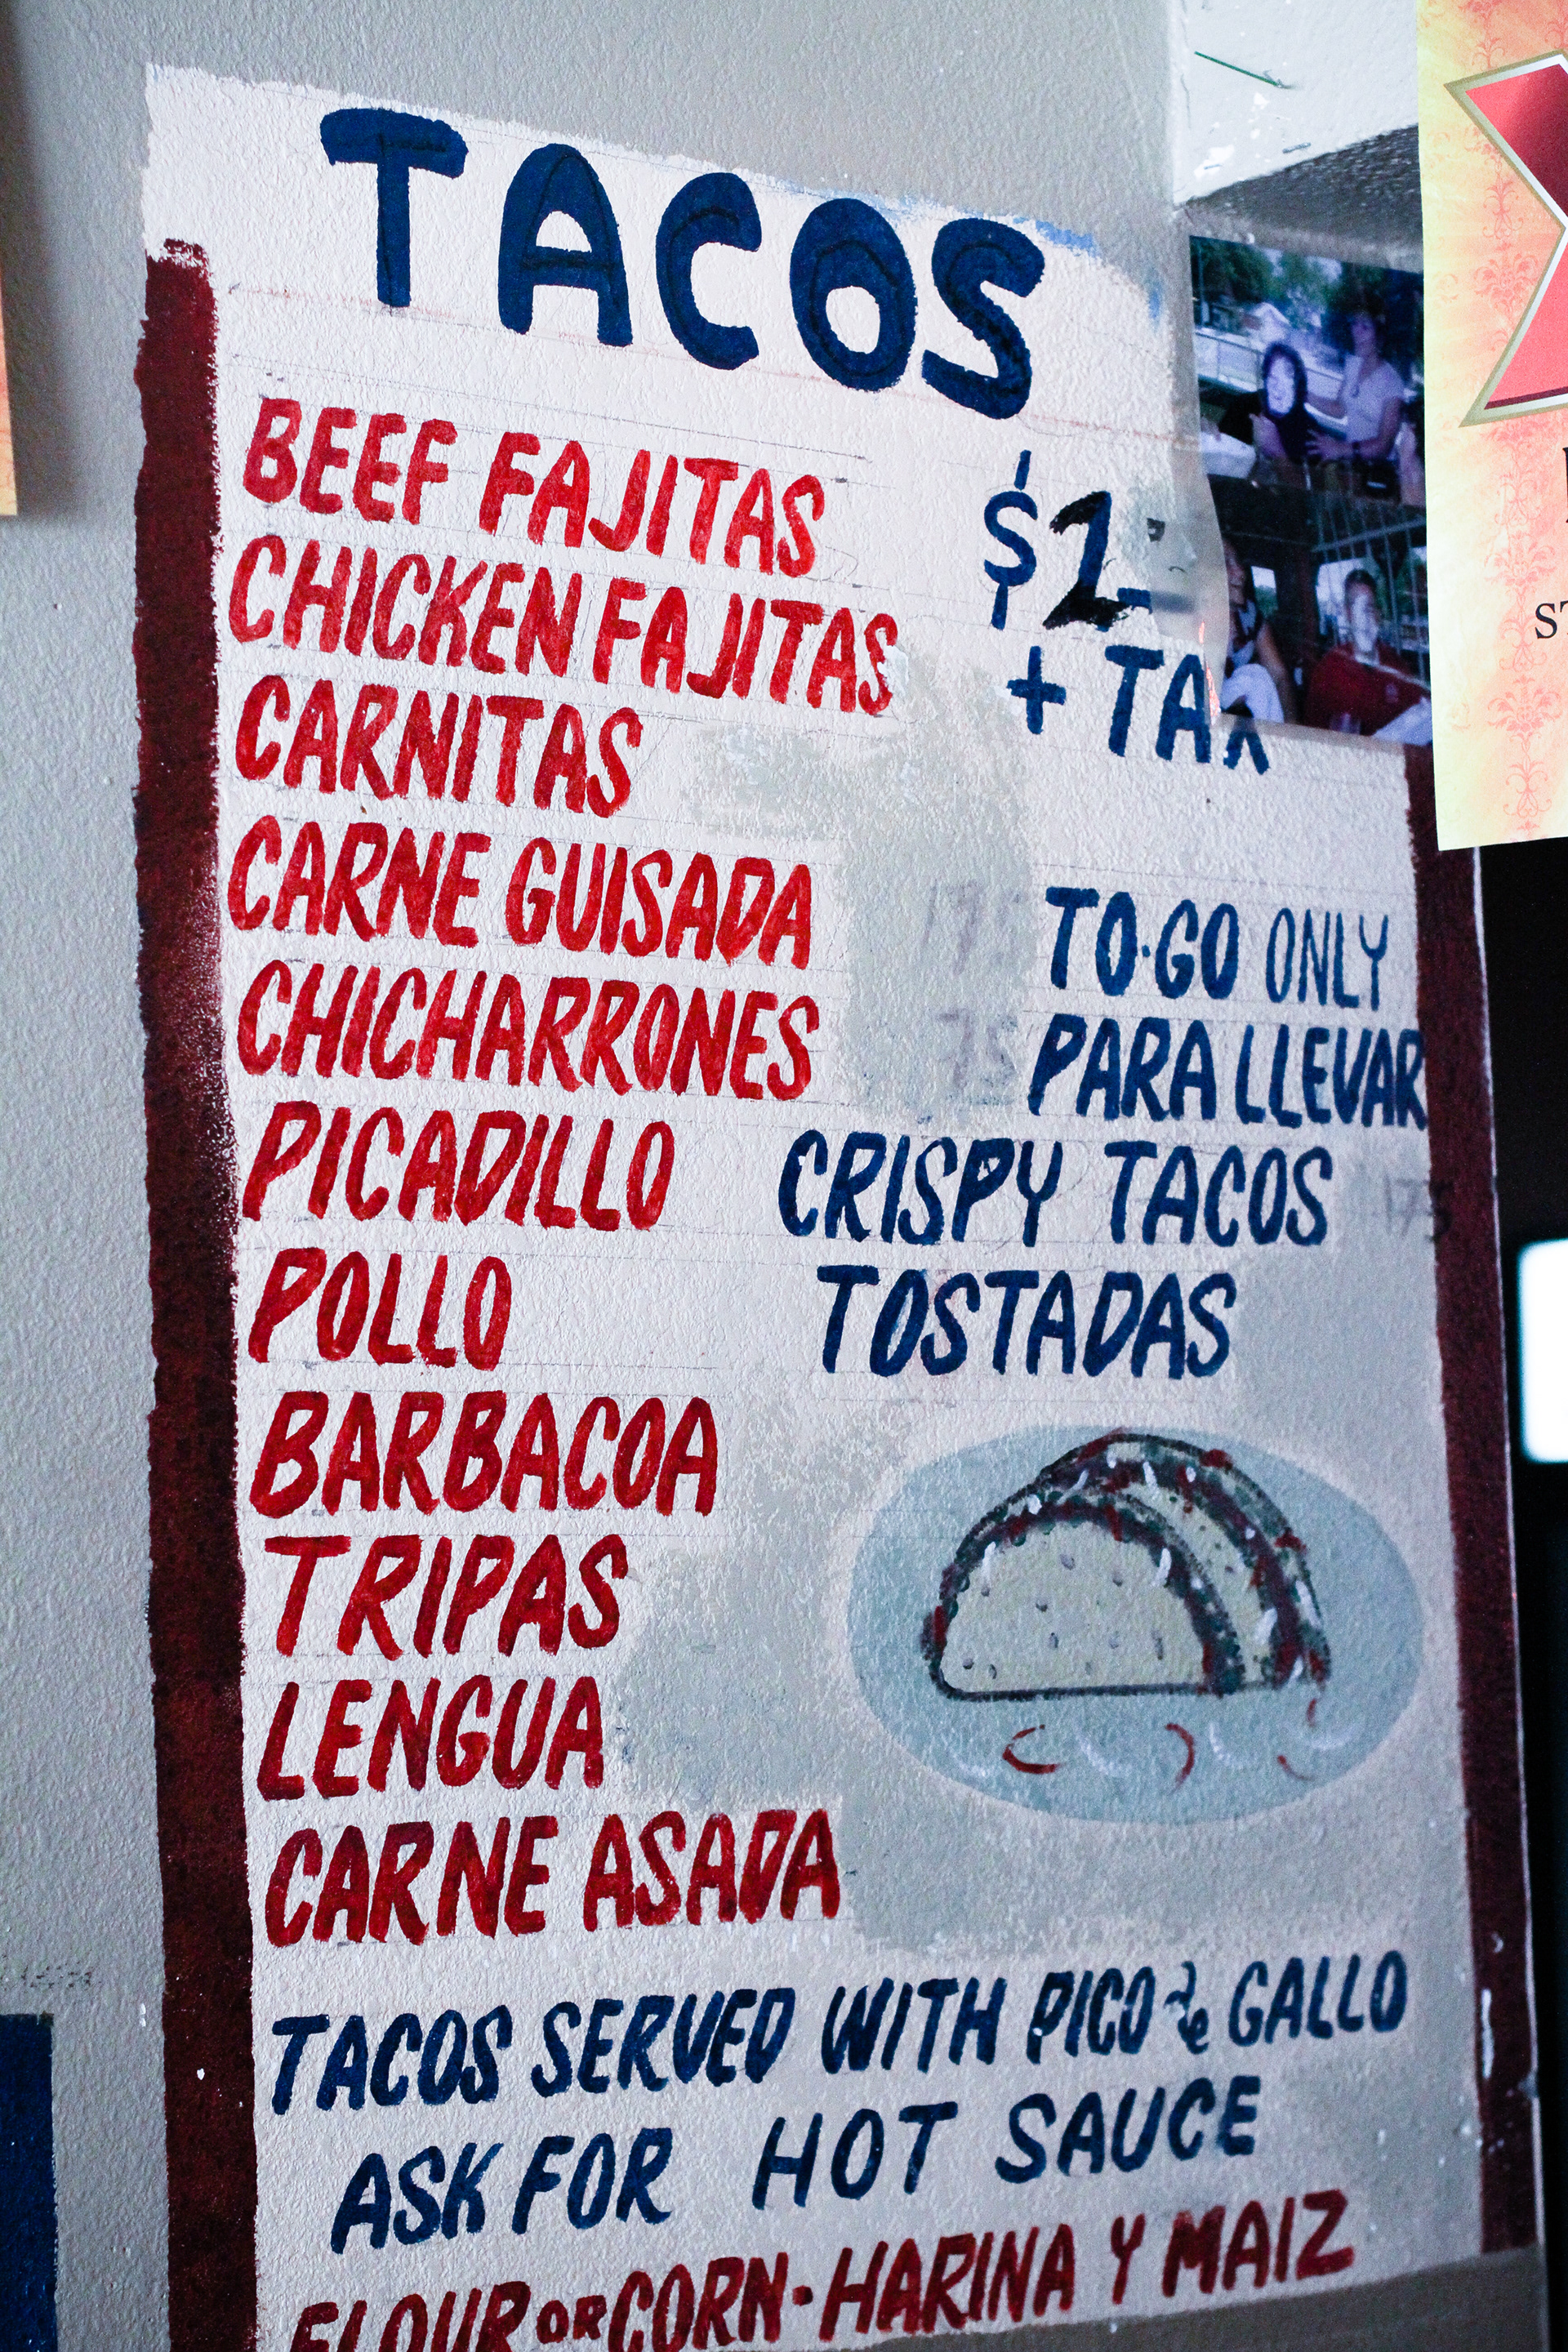 TACOS
BEEF FAJITAS
$2
CHICKEN FAJITAS
+ TAX
CARNITAS
CARNE GUISADA
TO·GO ONLY
CHICHARRONES
75 PARA LLEVAR
PICADILLO
CRISPY TACOS 175
POLLO
TOSTADAS
BARBACOA
TRIPAS
LENGUA
CARNE ASADA
TACOS SERVED WITH PICO de GALLO
ASK FOR HOT SAUCE
FLOUR OR CORN·HARINA Y MAIZ